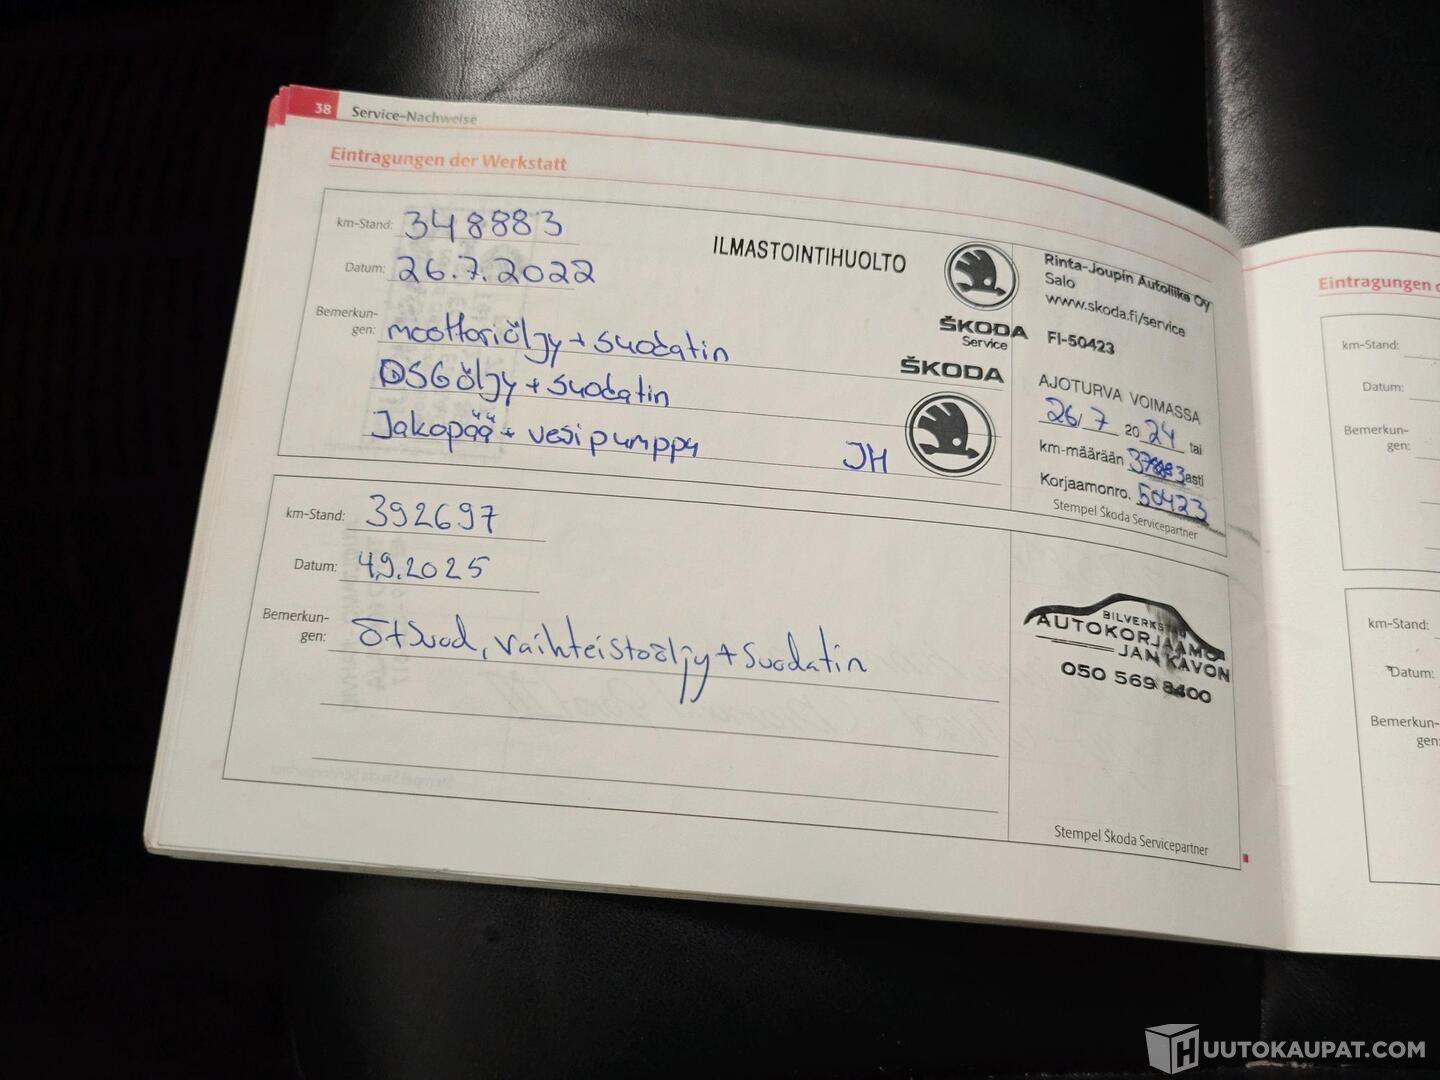 38 Service-Nachweise
Eintragungen der Werkstatt
km-Stand: 348883
Datum: 26.7.2022
Bemerkun-
gen: moottoriöljy + suodatin
DSG öljy + suodatin
Jakopää + vesipumppu
JH
ILMASTOINTIHUOLTO
ŠKODA
Service
ŠKODA
Rinta-Joupin Autoliike Oy
Salo
www.skoda.fi/service
FI-50423
AJOTURVA VOIMASSA
26/7 2024 tai
km-määrään asti
Korjaamonro. 50423
Stempel Škoda Servicepartner
km-Stand: 392697
Datum: 4.9.2025
Bemerkun-
gen: Ö+Suod, vaihteistoöljy + suodatin
BILVERKSTAD
AUTOKORJAAMO
JAN KAVON
050 569 8400
Stempel Škoda Servicepartner
Eintragungen
km-Stand:
Datum:
Bemerkun-
gen:
km-Stand:
Datum:
Bemerkun-
gen:
HUUTOKAUPAT.COM